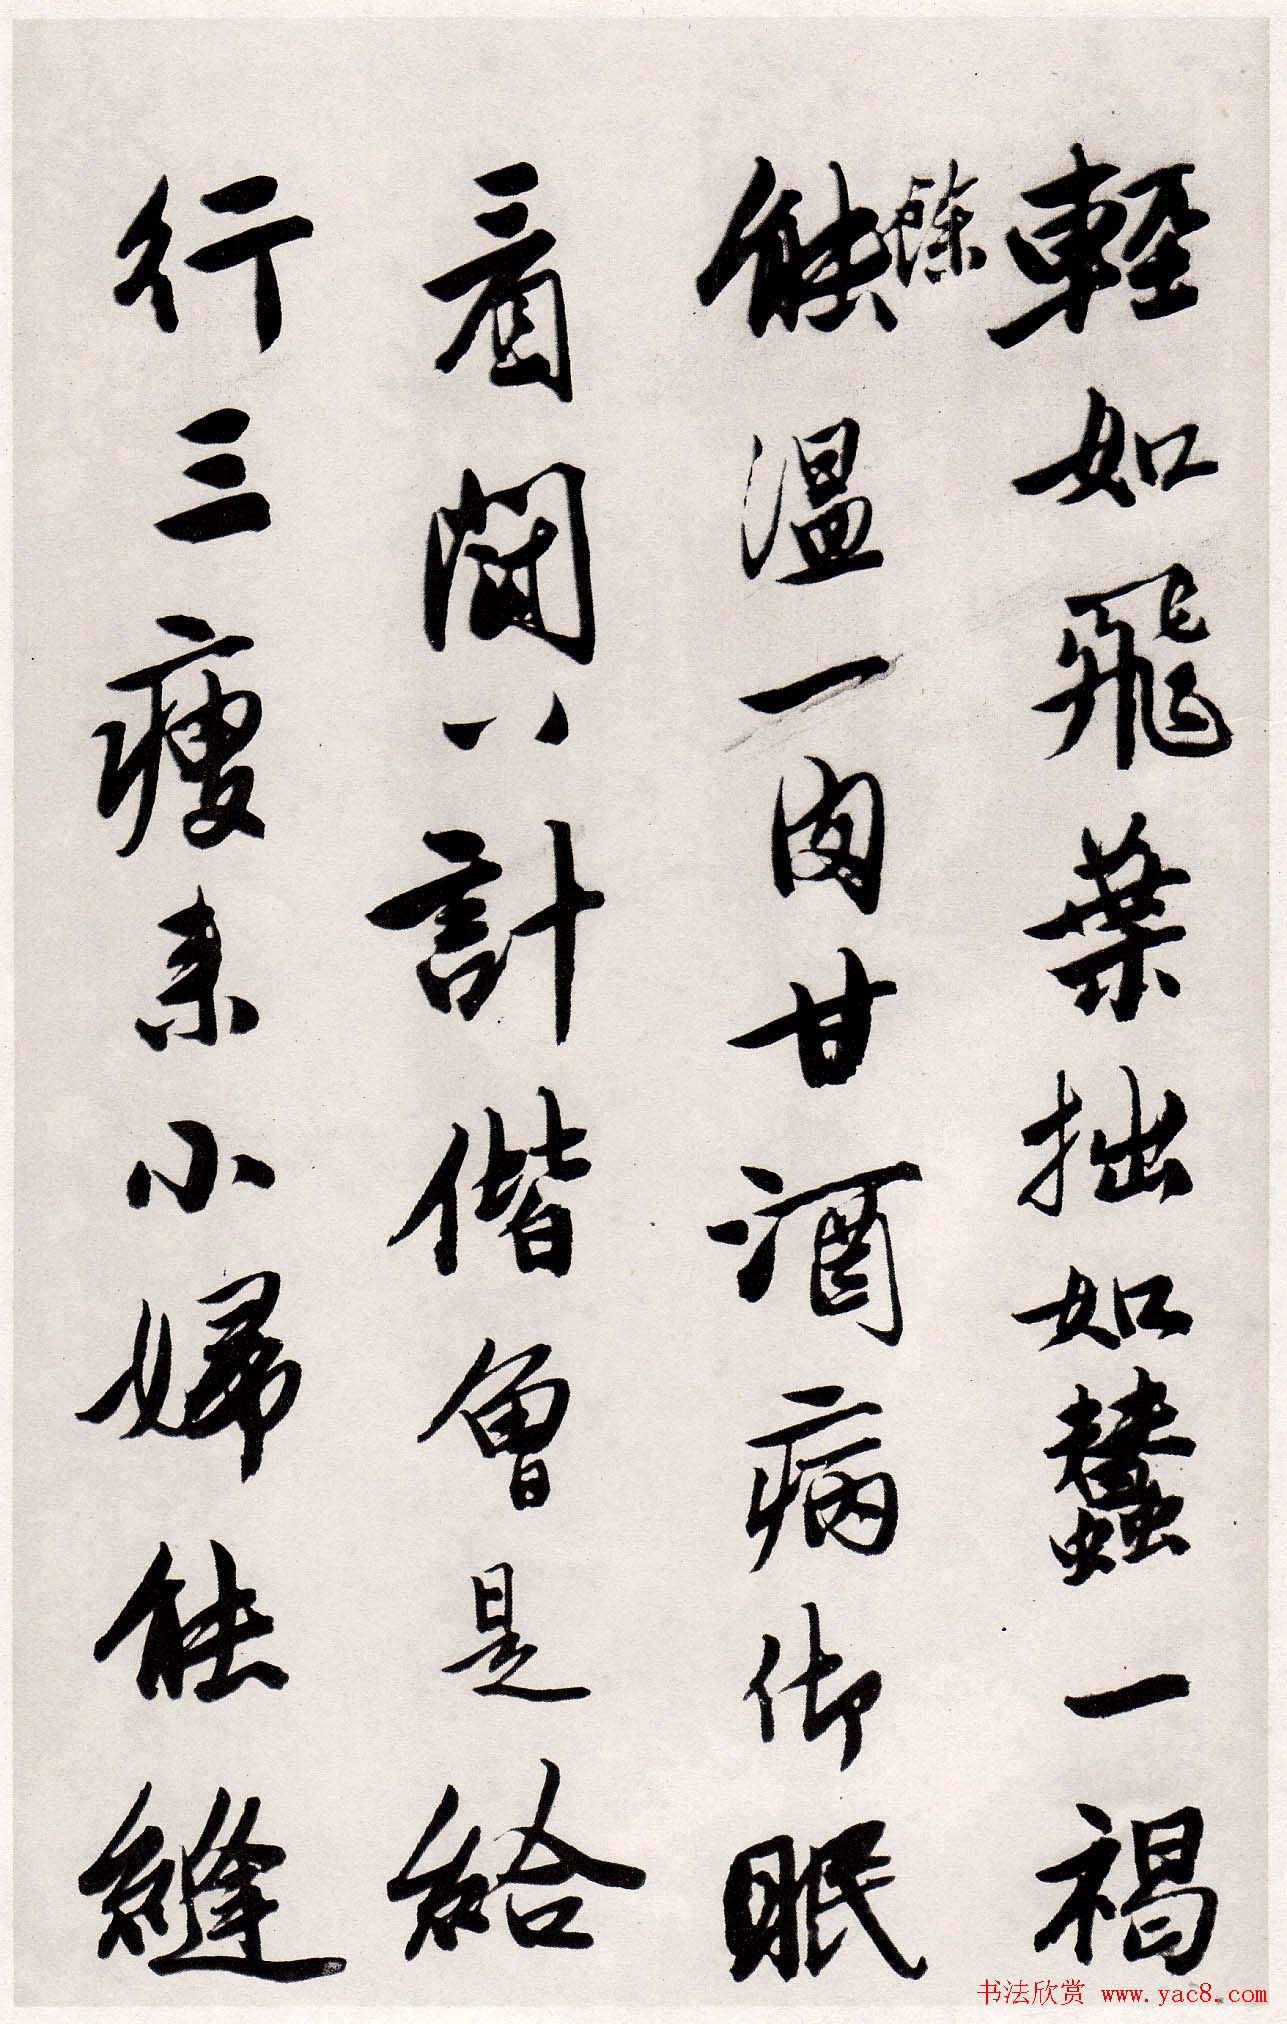 輕如飛葉拙如蠶一褐
餘
能溫一肉甘酒病御眠
看闘八計偕曾是給
行三瘦来小婦能縫
书法欣赏 www.yac8.com